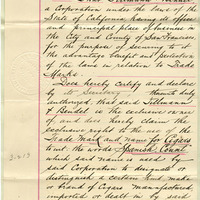 a Corporation under the laws of the
State of California having its office
and principal place of business
in the City and County of San Francisco
for the purpose of securing to it
the advantage benefit and protection
of the laws in relation to Trade
Marks.
Does hereby certify and declare
by its Secretary thereunto duly
authorized, that said Tillmann
& Bendel is the exclusive owner
of, and does hereby claim the
exclusive right to the use of the
Trade mark and name for Cigars
to wit the words "Spanish Count"
which said name is used by
said Corporation to designate or
distinguish a certain kind make
or brand of Cigars manufactured
imported or dealt in by said